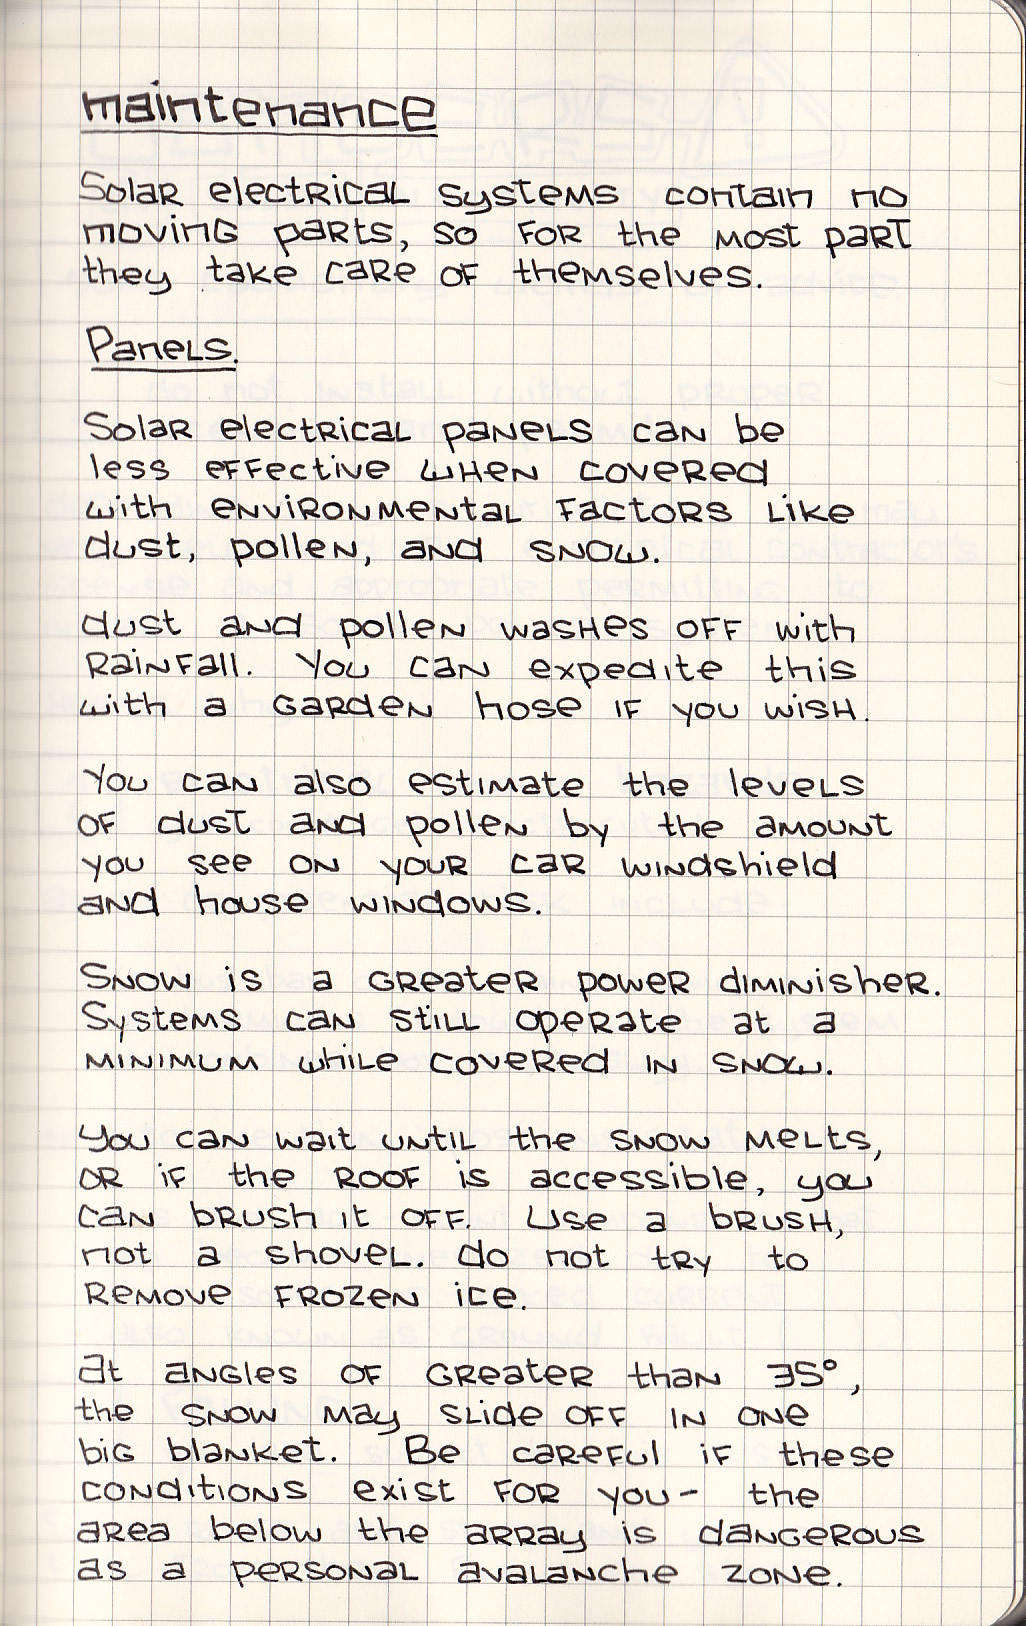 maintenance
Solar electrical systems contain no
moving parts, so for the most part
they take care of themselves.
Panels.
Solar electrical panels can be
less effective when covered
with environmental factors like
dust, pollen, and snow.
dust and pollen washes off with
rainfall. You can expedite this
with a garden hose if you wish.
You can also estimate the levels
of dust and pollen by the amount
you see on your car windshield
and house windows.
Snow is a greater power diminisher.
Systems can still operate at a
minimum while covered in snow.
You can wait until the snow melts,
or if the roof is accessible, you
can brush it off. Use a brush,
not a shovel. do not try to
remove frozen ice.
At angles of greater than 35°,
the snow may slide off in one
big blanket. Be careful if these
conditions exist for you - the
area below the array is dangerous
as a personal avalanche zone.